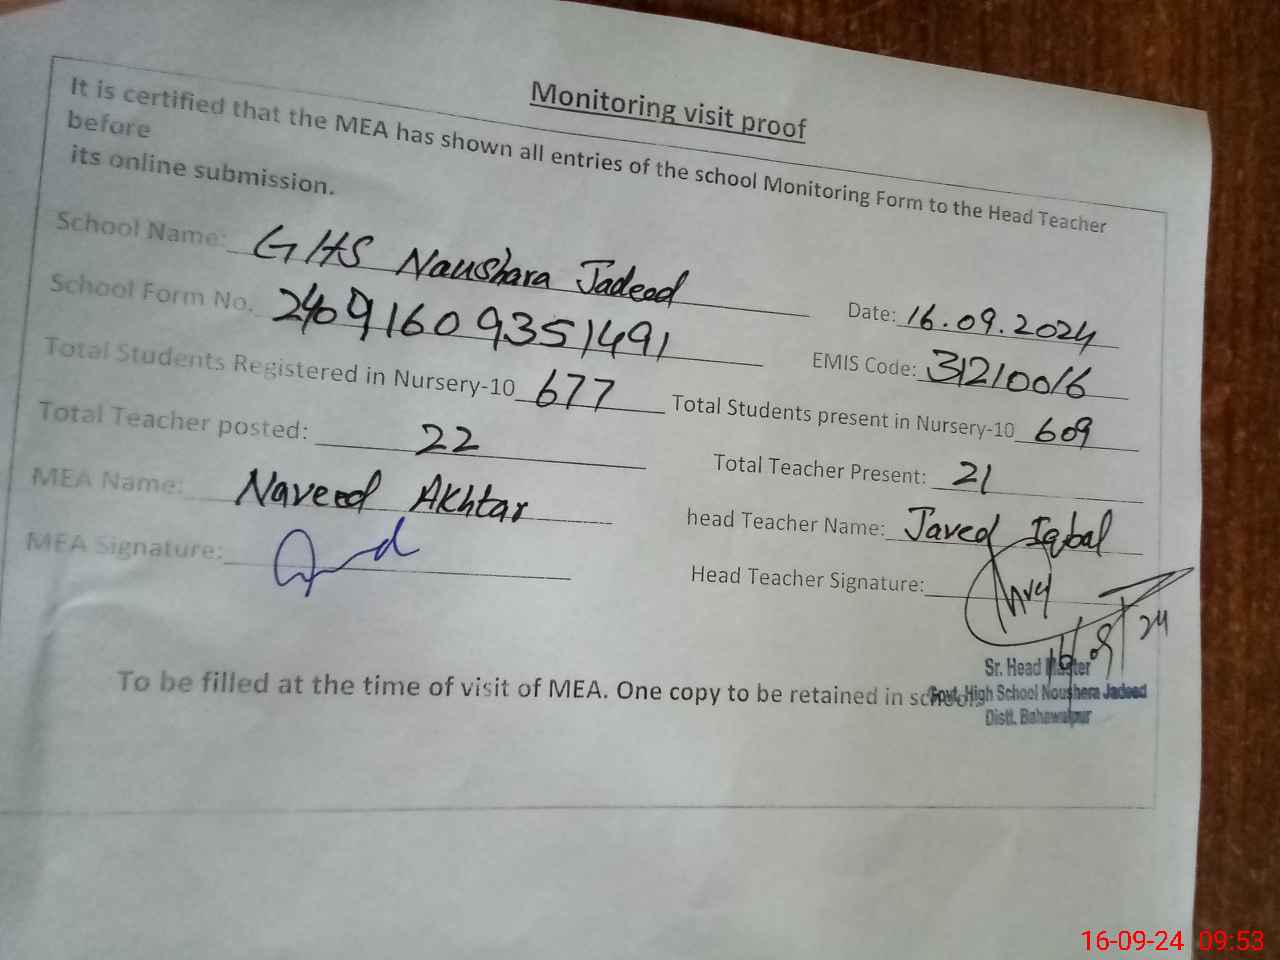 Monitoring visit proof
It is certified that the MEA has shown all entries of the school Monitoring Form to the Head Teacher
before
its online submission.
School Name: GHS Naushara Jadeed
Date: 16.09.2024
School Form No. 24091609351491
EMIS Code: 31210016
Total Students Registered in Nursery-10 677 Total Students present in Nursery-10 609
Total Teacher posted: 22 Total Teacher Present: 21
MEA Name: Naveed Akhtar head Teacher Name: Javed Iqbal
MEA Signature: Head Teacher Signature:
16/09/24
Sr. Head Master
Govt. High School Noushera Jadeed
Distt. Bahawalpur
To be filled at the time of visit of MEA. One copy to be retained in schools
16-09-24 09:53